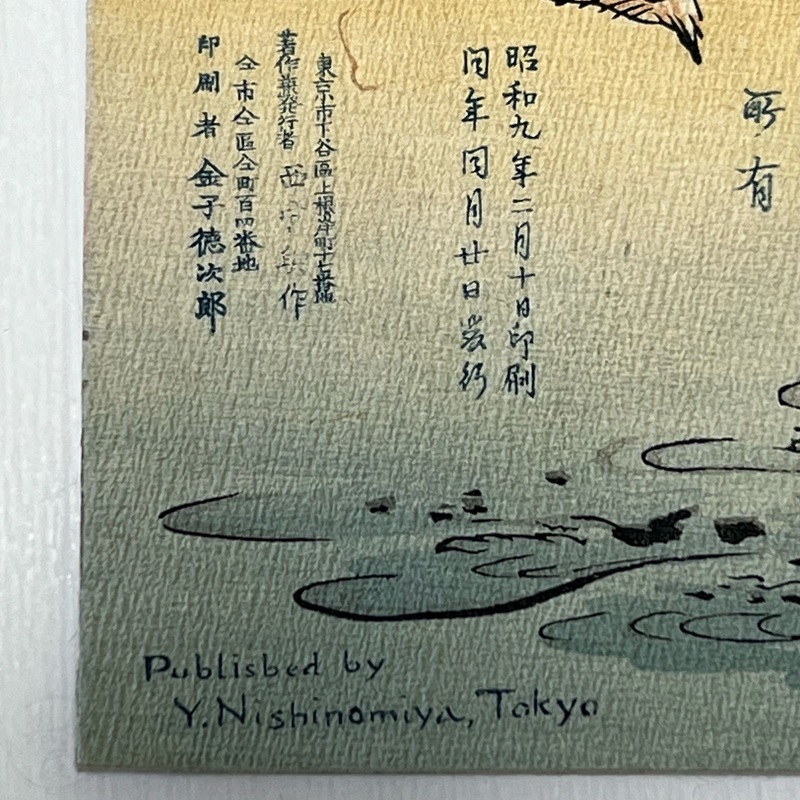 所有
昭和九年二月十日印刷
同年同月廿日発行
東京市下谷區上根岸町十七番地
著作兼発行者 西宮與作
仝市仝區仝町百四番地
印刷者 金子徳次郎
Published by
Y. Nishinomiya, Tokyo